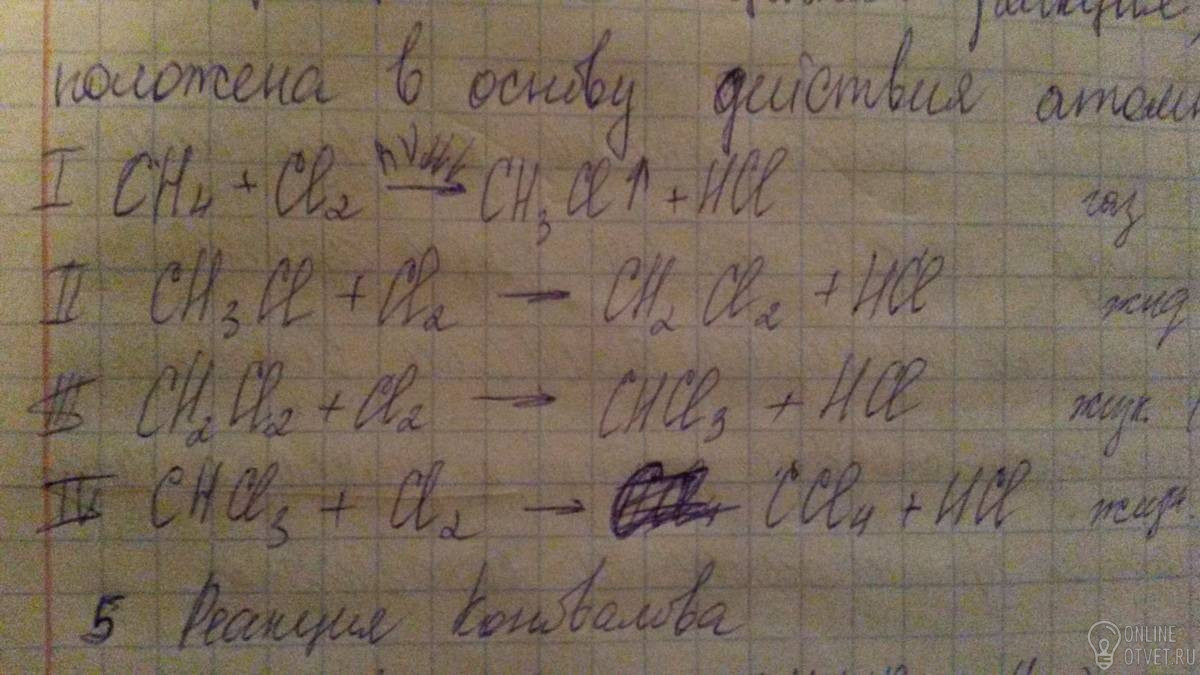 положена в основу действия атомн
I CH₄ + Cl₂ → CH₃Cl↑ + HCl газ
II CH₃Cl + Cl₂ → CH₂Cl₂ + HCl жид
III CH₂Cl₂ + Cl₂ → CHCl₃ + HCl
IV CHCl₃ + Cl₂ → CCl₄ + HCl
5 Реакция Коновалова
ONLINE
OTVET.RU